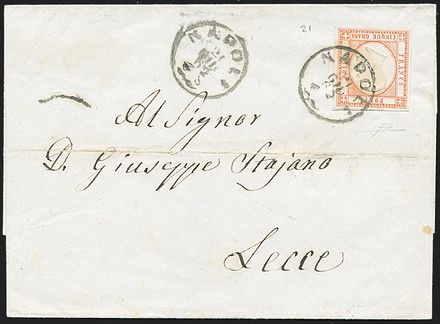 21
NAPOLI
NAPOLI
FRANCO
CINQUE GRANA
Al Signor
D. Giuseppe Stajano
Lecce